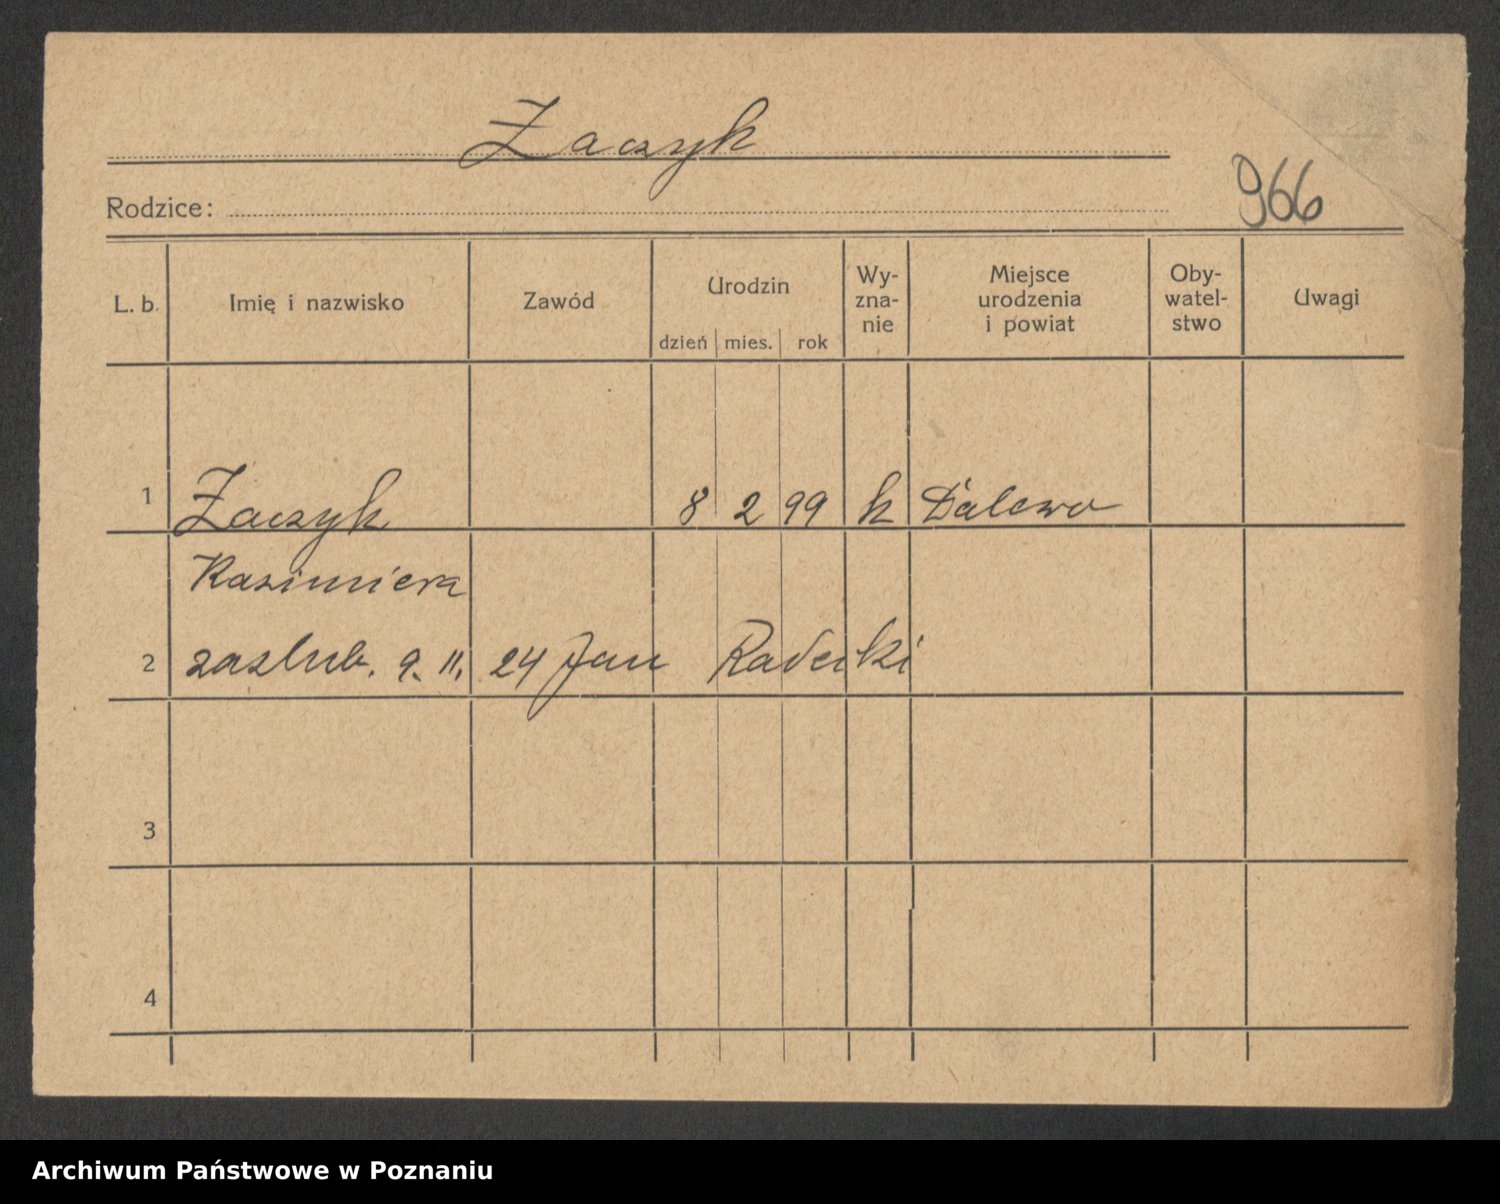 Żaczyk
Rodzice:
966
L. b. Imię i nazwisko Zawód Urodzin dzień mies. rok Wy-zna-nie Miejsce urodzenia i powiat Oby-watel-stwo Uwagi
1 Żaczyk 8 2 99 k Dalewo
Kazimiera
2 zaslub. 9. 11. 24 Jan
3
4
Archiwum Państwowe w Poznaniu